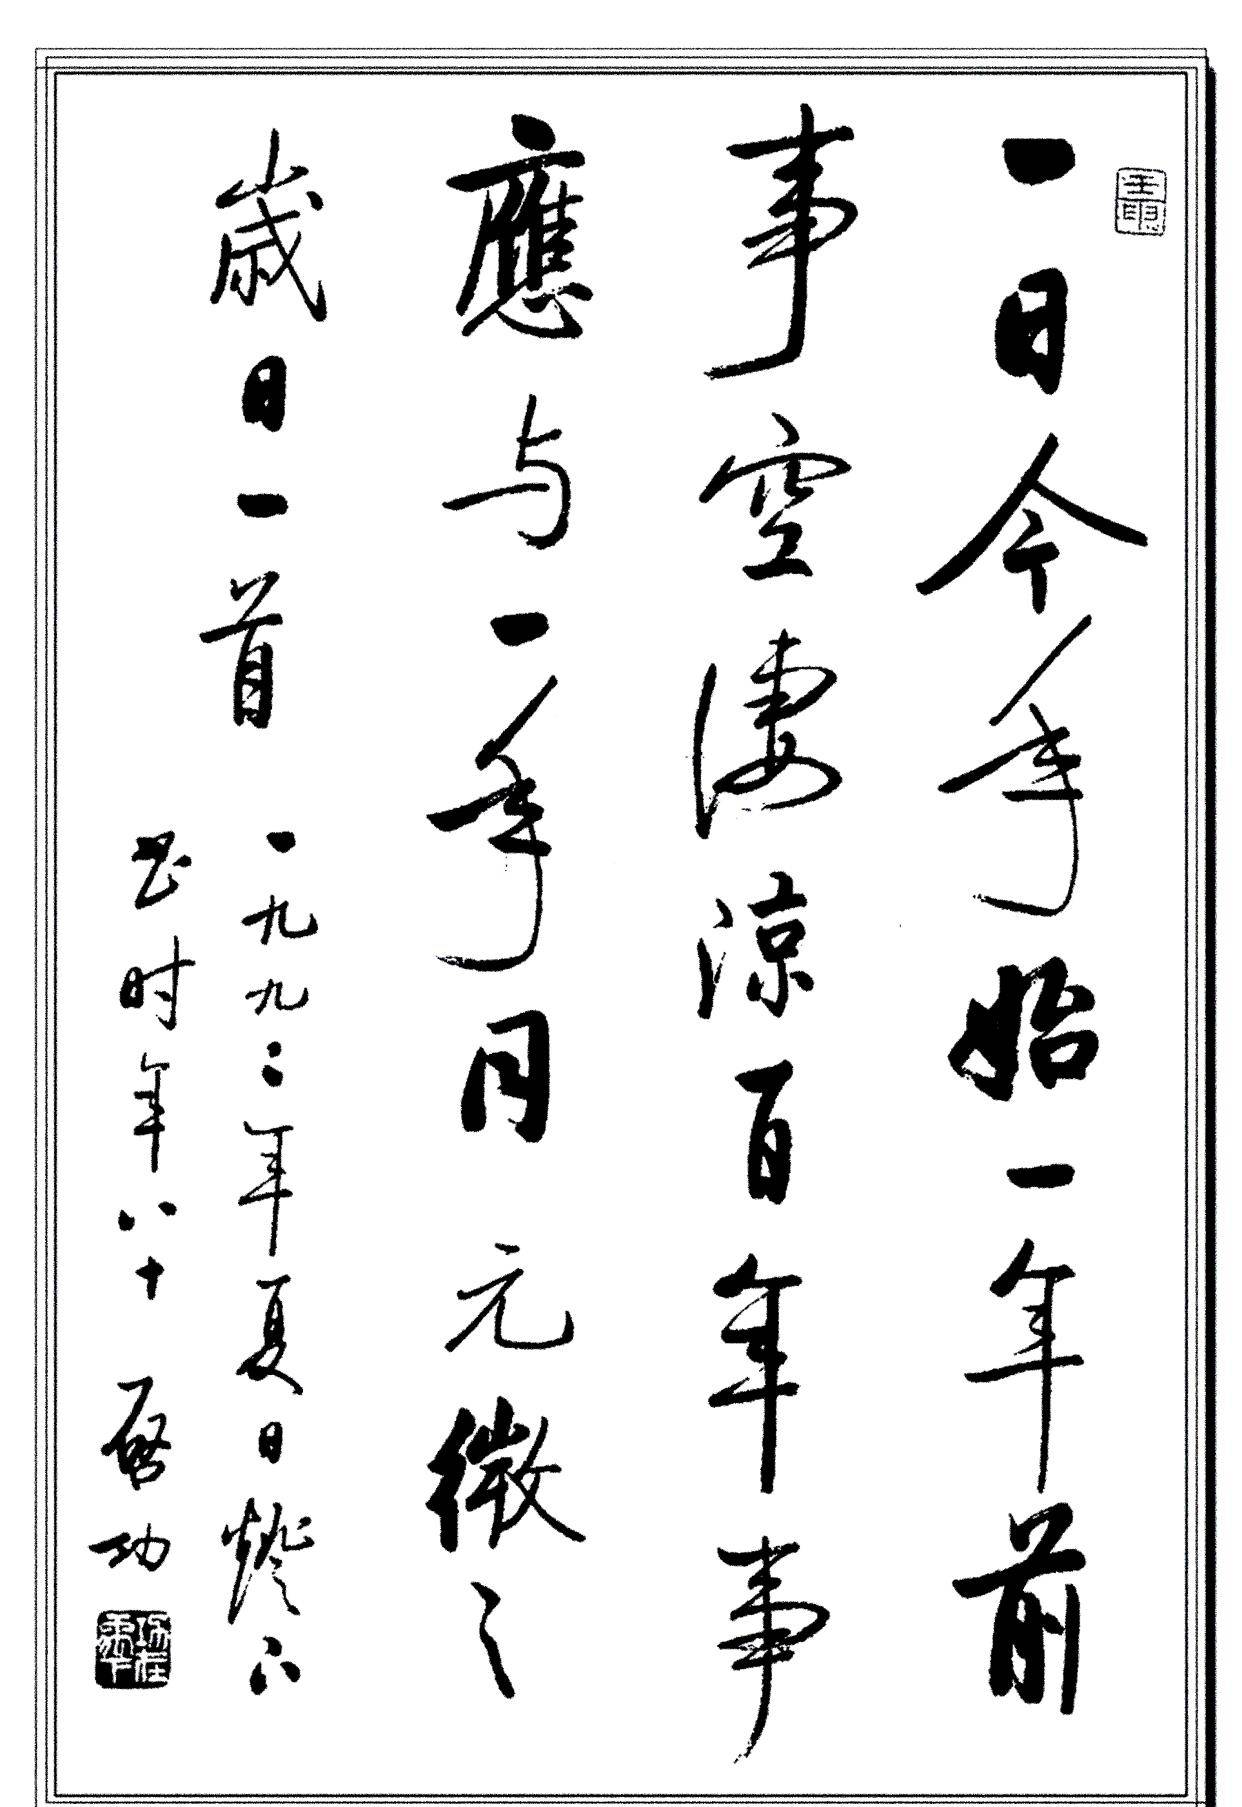 一日今年始一年前
事空淒涼百年事
應与一年同元微之
歲日一首 一九九二年夏日燈下
书时年八十 啓功